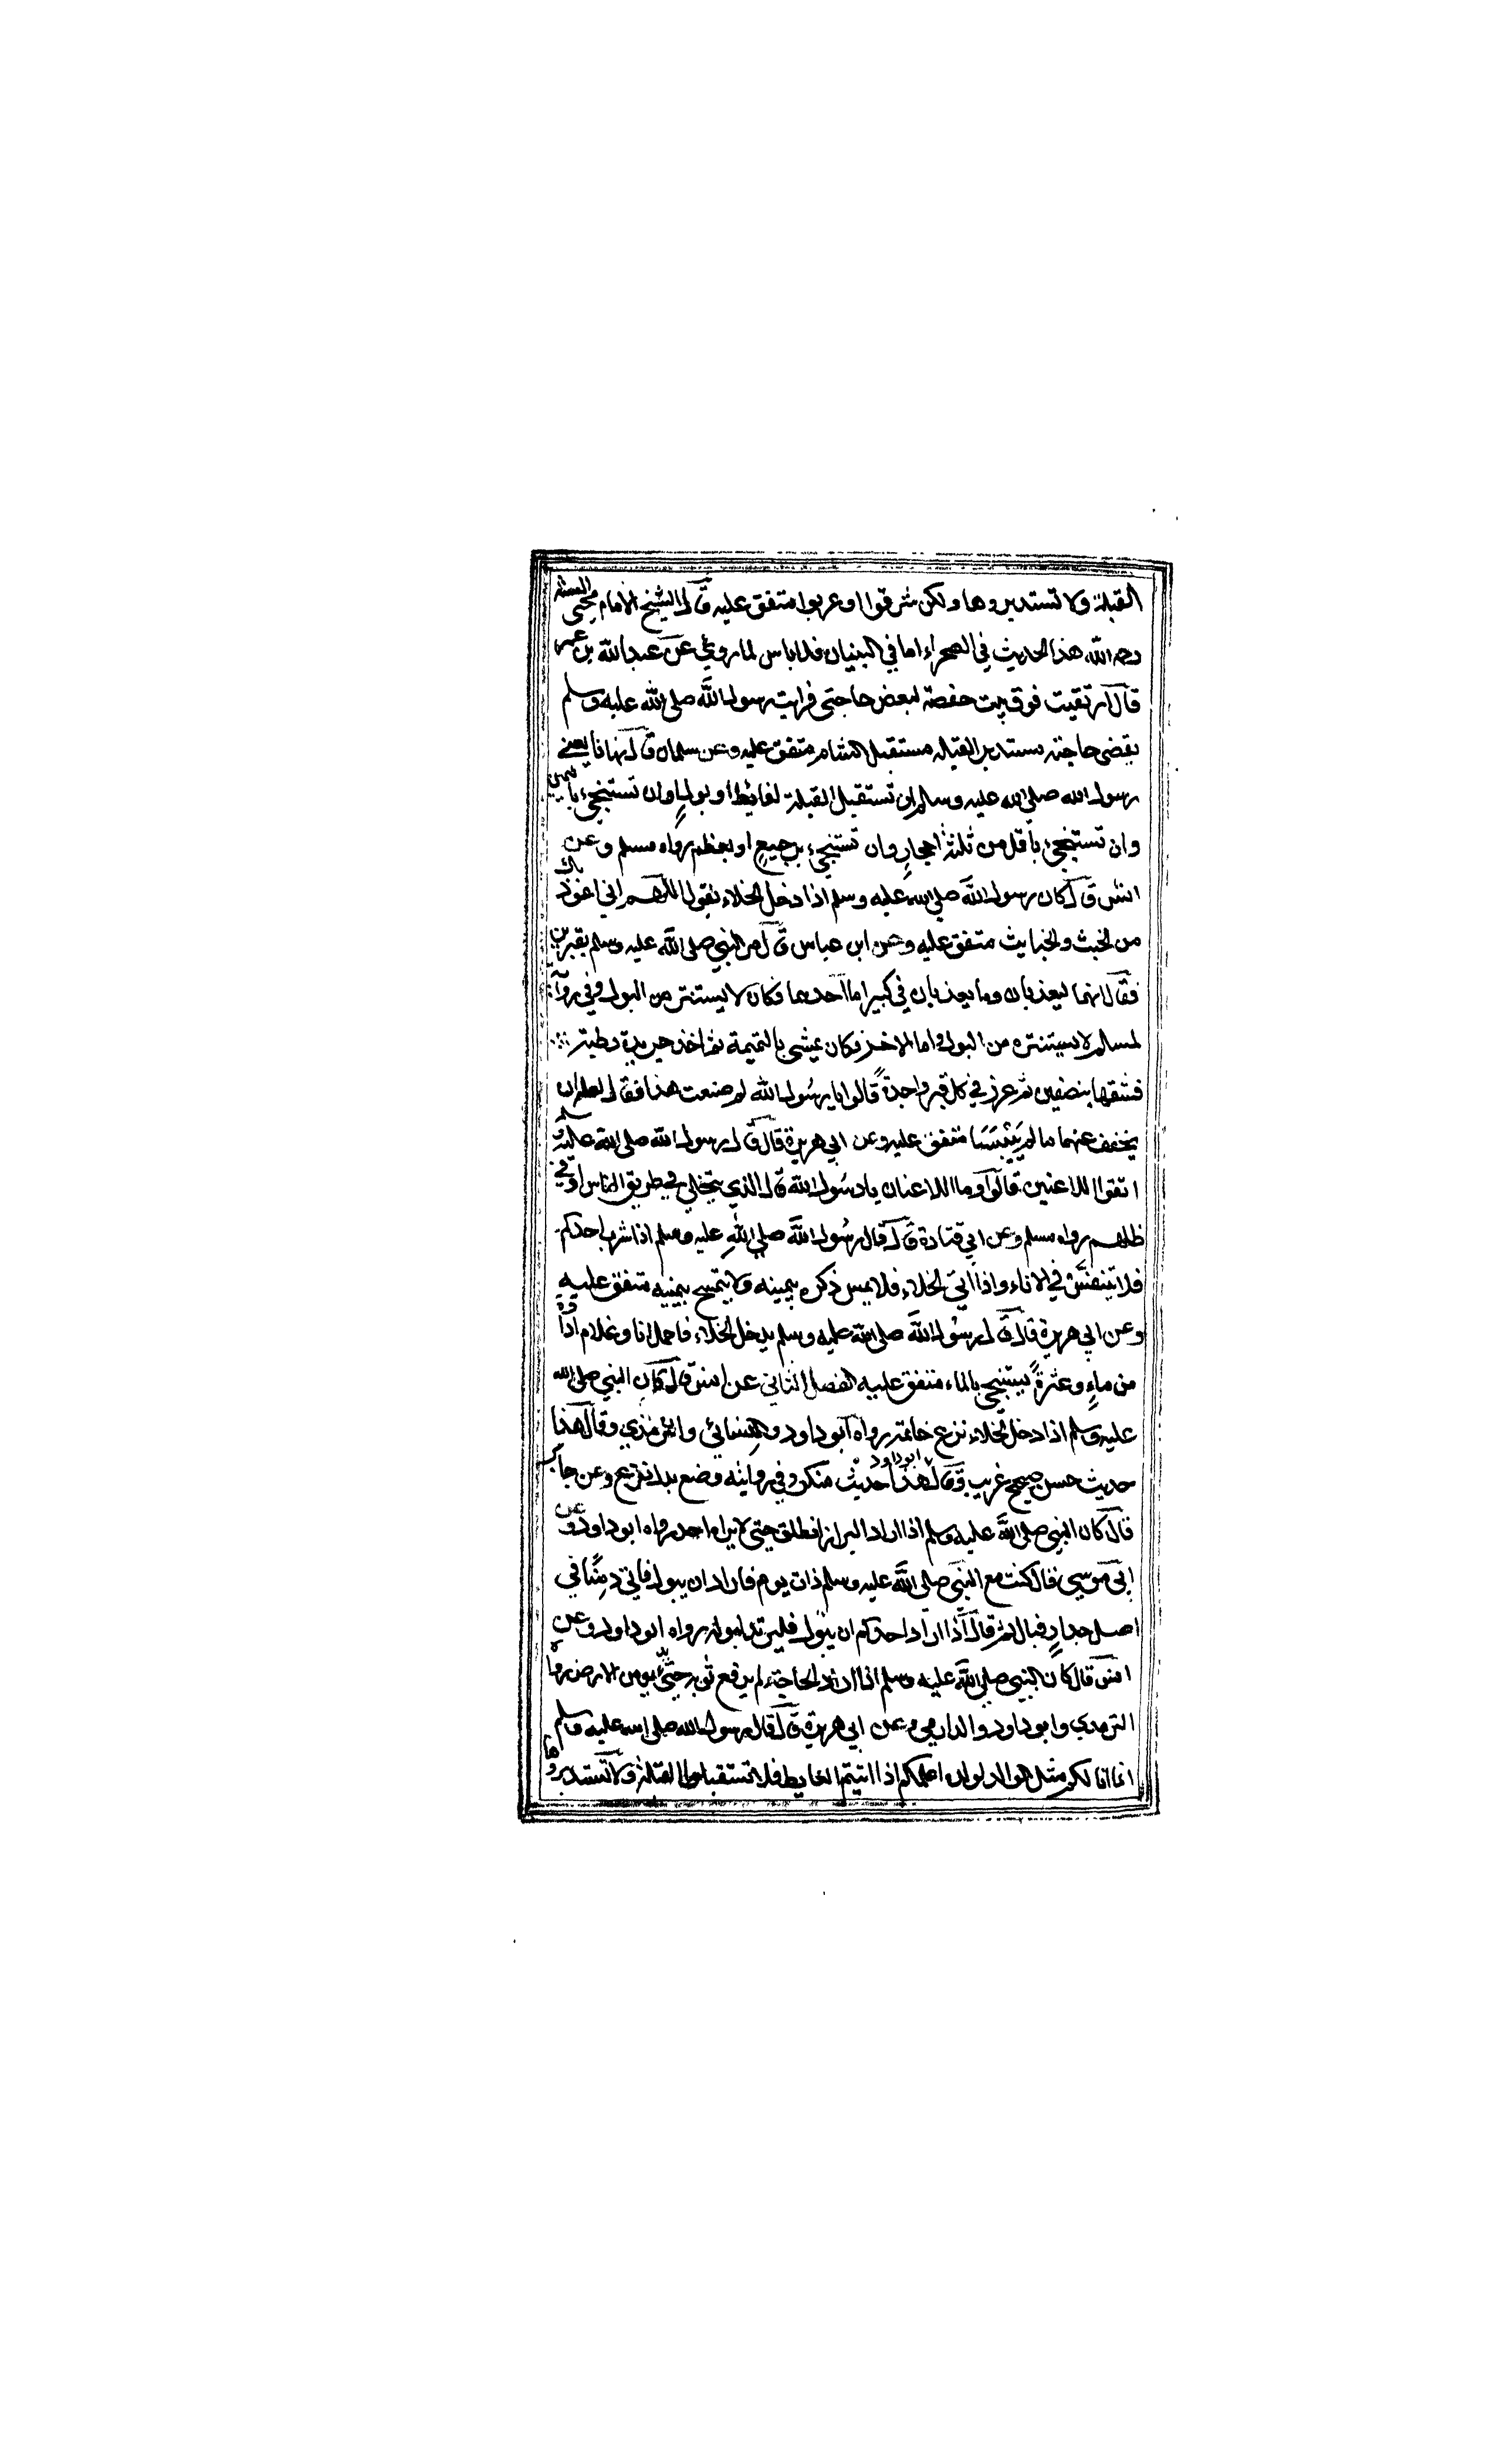 القبلة ولا تستدبروها ولكن شرقوا او غربوا متفق عليه قال الشيخ الامام محيى السنة
رحمه الله هذا الحديث في الصحراء اما في البنيان فلا باس لما روي عن عبد الله بن عمر
قال ارتقيت فوق بيت حفصة لبعض حاجتى فرايت رسول الله صلى الله عليه وسلم
يقضى حاجته مستدبر القبله مستقبل الشام متفق عليه وعن سلمان قال نهانا يعنى
رسول الله صلى الله عليه وسلم ان تستقبل القبلة لغائط او بولٍ وان تستنجىء باليمين
وان تستنجىء باقل من ثلثة احجارٍ وان تستنجىء برجيعٍ او بعظم رواه مسلم وعن
انس قال كان رسول الله صلى الله عليه وسلم اذا دخل الخلاء يقول اللهم اني اعوذ بك
من الخبث والخبايث متفق عليه وعن ابن عباس قال مر النبي صلى الله عليه وسلم بقبرين
فقال انهما ليعذبان وما يعذبان في كبير اما احدهما فكان لا يستتر من البول وفي رواية
لمسلم لا يستنزه من البول واما الاخر فكان يمشى بالنميمة ثم اخذ جريدة رطبة
فشقها بنصفين ثم غرز في كل قبر واحدةً قالوا يا رسول الله لم صنعت هذا فقال لعله ان
يخفف عنهما ما لم ييبسا متفق عليه وعن ابي هريرة قال قال رسول الله صلى الله عليه وسلم
اتقوا اللاعنين قالوا وما اللاعنان يا رسول الله قال الذي يتخلى في طريق الناس او في
ظلهم رواه مسلم وعن ابي قتادة قال قال رسول الله صلى الله عليه وسلم اذا شرب احدكم
فلا يتنفس في الاناء واذا اتى الخلاء فلا يمس ذكره بيمينه ولا يتمسح بيمينه متفق عليه
وعن ابي هريرة قال قال رسول الله صلى الله عليه وسلم يدخل الخلاء فاحمل انا وغلام اداوة
من ماءٍ وعنزةً يستنجى بالماء متفق عليه الفصل الثاني عن انس قال كان النبي صلى الله
عليه وسلم اذا دخل الخلاء نزع خاتمه رواه ابو داود والنسائي والترمذي وقال هذا
حديث حسن صحيح غريب وقال ابو داود هذا حديث منكر وفي روايته وضع بدل نزع وعن جابر
قال كان النبي صلى الله عليه وسلم اذا اراد البراز انطلق حتى لا يراه احد رواه ابو داود وعن
ابي موسي قال كنت مع النبي صلى الله عليه وسلم ذات يوم فاراد ان يبول فاتى دمثًا في
اصل جدارٍ فبال ثم قال اذا اراد احدكم ان يبول فليرتد لبوله رواه ابو داود وعن
انس قال كان النبي صلى الله عليه وسلم اذا اراد الحاجة لم يرفع ثوبه حتى يدنو من الارض رواه
الترمدي وابو داود والدارمي وعن ابي هريرة قال قال رسول الله صلى الله عليه وسلم
انما انا لكم مثل الوالد لولده اعلمكم اذا اتيتم الغايط فلا تستقبلوا القبلة ولا تستدبروها